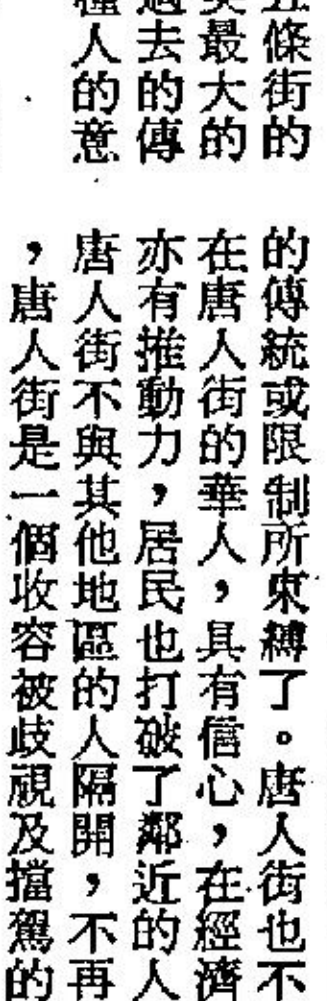 條街的
最大的
過去的傳
種人的意
的傳統或限制所束縛了。唐人街也不
在唐人街的華人，具有信心，在經濟
亦有推動力，居民也打破了鄰近的人
唐人街不與其他地區的人隔開，不再
，唐人街是一個收容被歧視及擋駕的